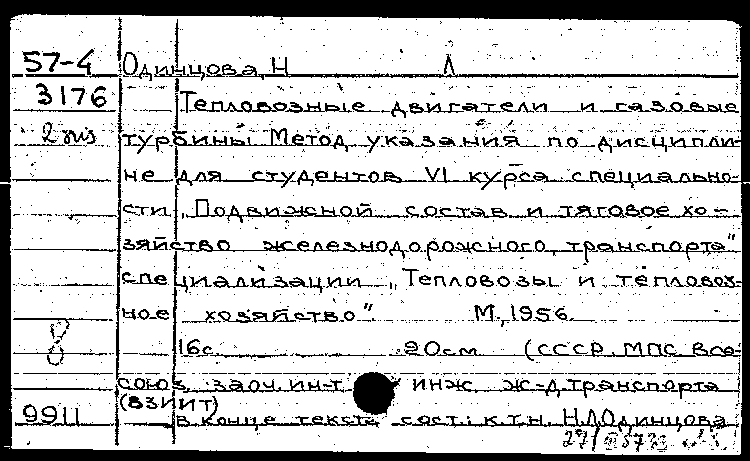 57-4 Одинцова, Н Л
3176 Тепловозные двигатели и газовые
2 экз турбины Метод указания по дисципли-
не для студентов VI курса специально-
сти „Подвижной состав и тяговое хо-
зяйство железнодорожного транспорта"
специализации „Тепловозы и тепловоз-
ное хозяйство". М., 1956.
8 16с. 20см (СССР. МПС Все-
союз. заоч. ин-т инж. ж-д. транспорта
(ВЗИИТ)
9911 В конце текста сост.: к.т.н. Н.Л.Одинцова